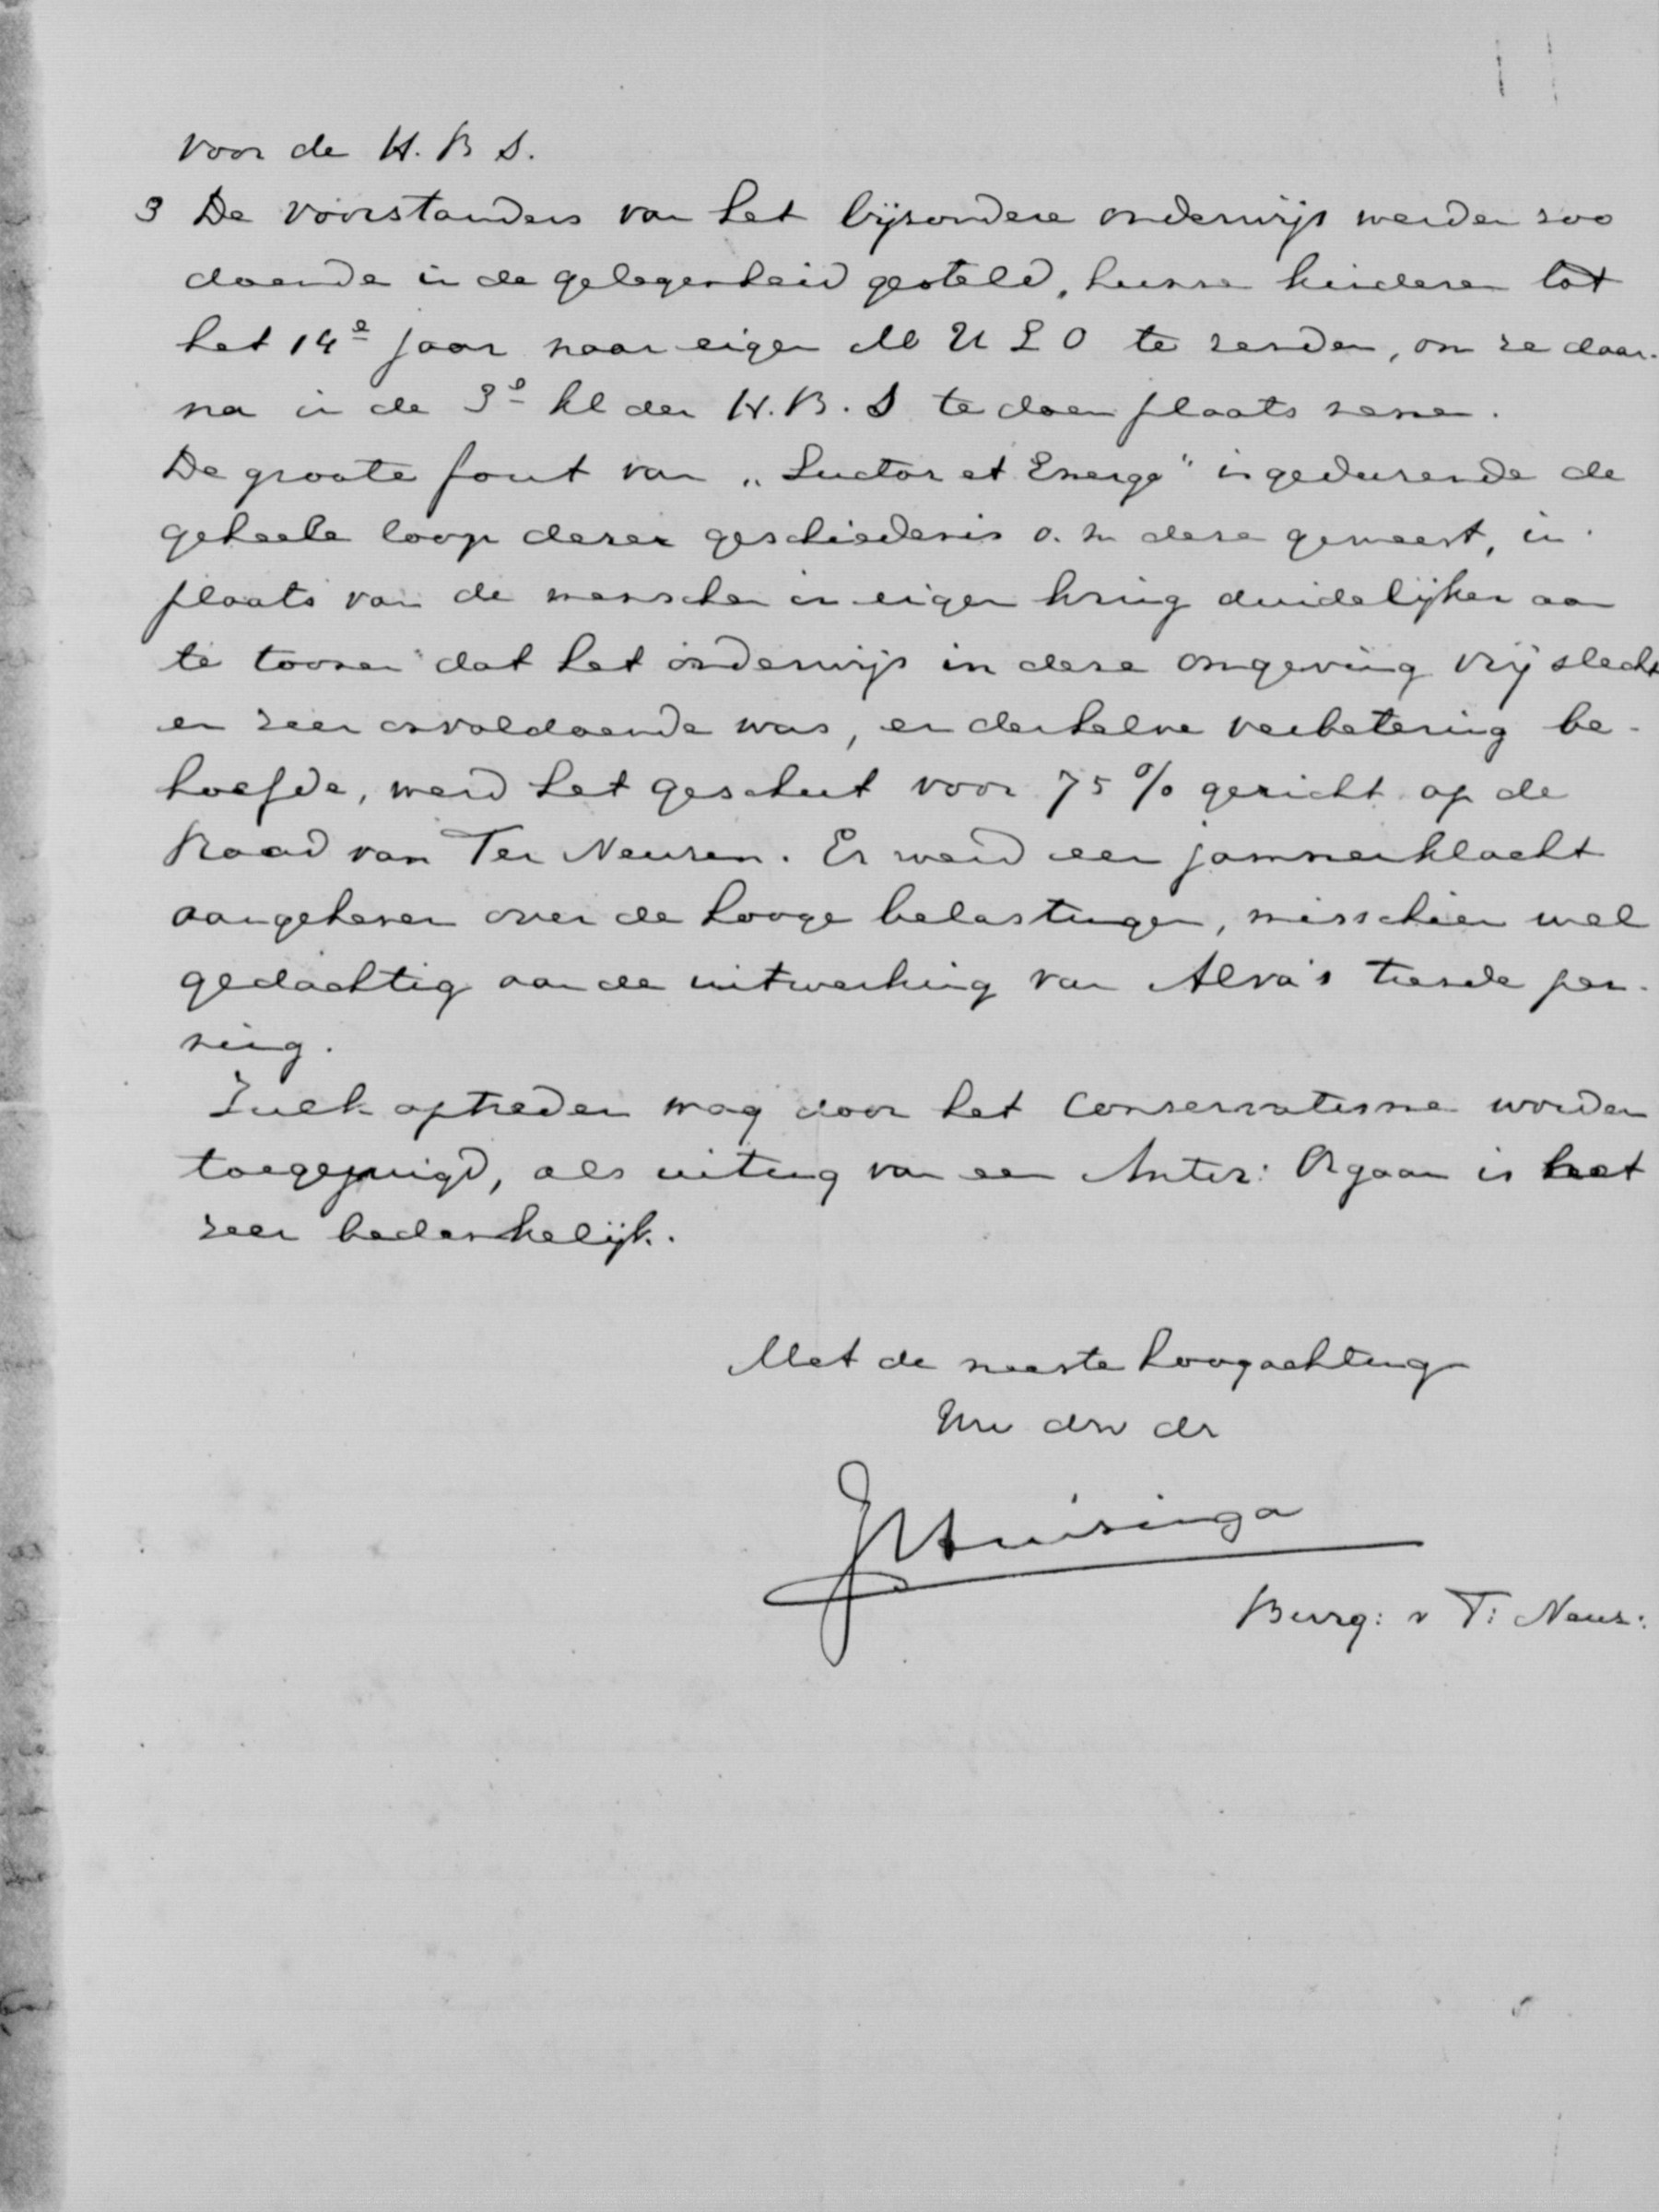 voor de H. B S.
3 De voorstanders van het bijzondere onderwijs werden zoo
doende in de gelegenheid gesteld, hunne kinderen tot
het 14e jaar naar eigen M U L O te zenden, om ze daar-
na in de 3e kl der H. B. S te doen plaats nemen.
De groote fout van „Luctor et Emergo" is gedurende de
geheele loop dezer geschiedenis o. m deze geweest, in
plaats van de menschen in eigen kring duidelijker aan
te toonen dat het onderwijs in deze omgeving vrij slecht
en zeer onvoldoende was, en derhalve verbetering be-
hoefde, werd het geschut voor 75 % gericht op de
Raad van Ter Neuzen. Er werd een jammerklacht
aangeheven over de hooge belastingen, misschien wel
gedachtig aan de uitwerking van Alva's tiende pen-
ning.
Zulk optreden mag door het Conservatisme worden
toegejuigd, als uiting van een Antir: Orgaan is het
zeer bedenkelijk.
Met de meeste hoogachting
Uw dw dr
J Huizinga
Burg: v T: Neuz: